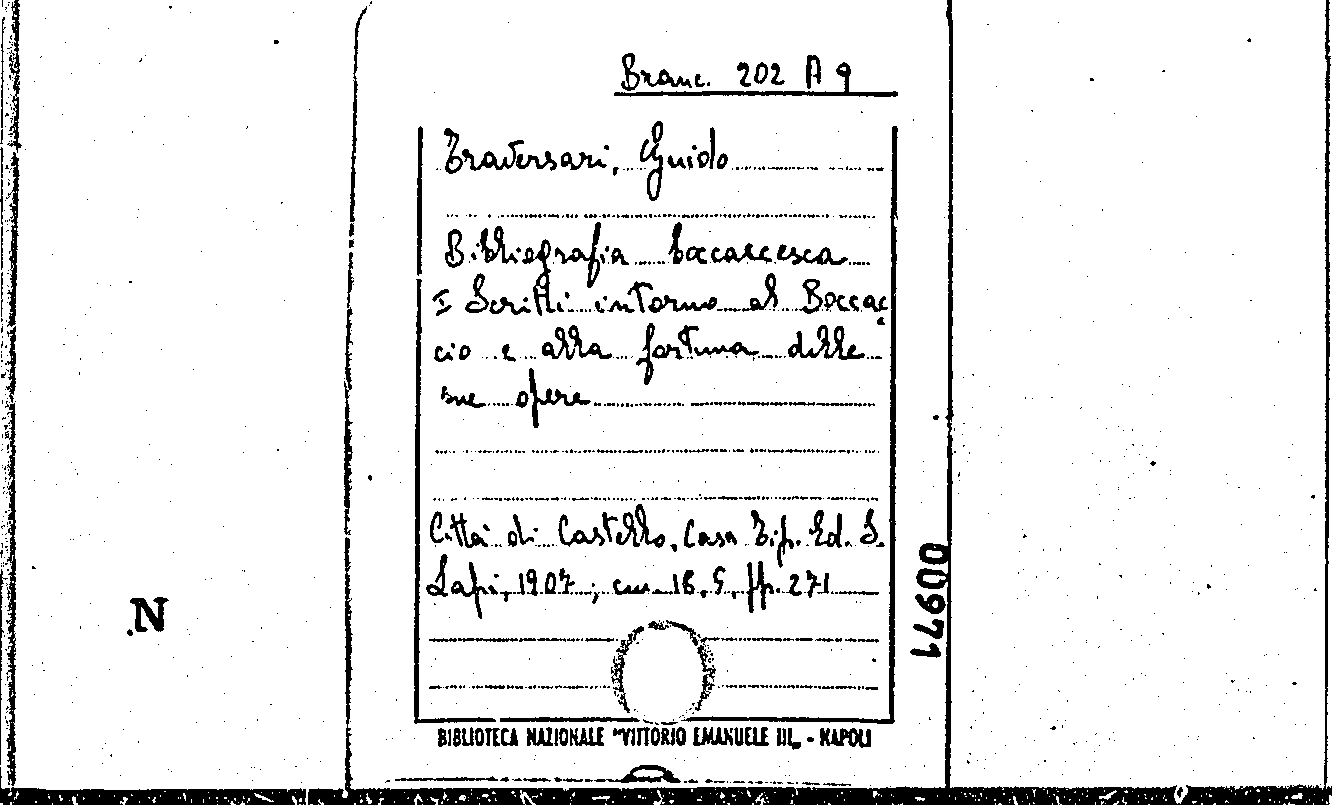 Branc. 202 A 9
Traversari, Guido
Bibliografia boccaccesca
I Scritti intorno al Boccac
cio e alla fortuna delle
sue opere
Città di Castello, Casa Tip. Ed. S.
Lapi, 1907; cm. 18,5, pp. 271
00971
N
BIBLIOTECA NAZIONALE "VITTORIO EMANUELE III„ - NAPOLI